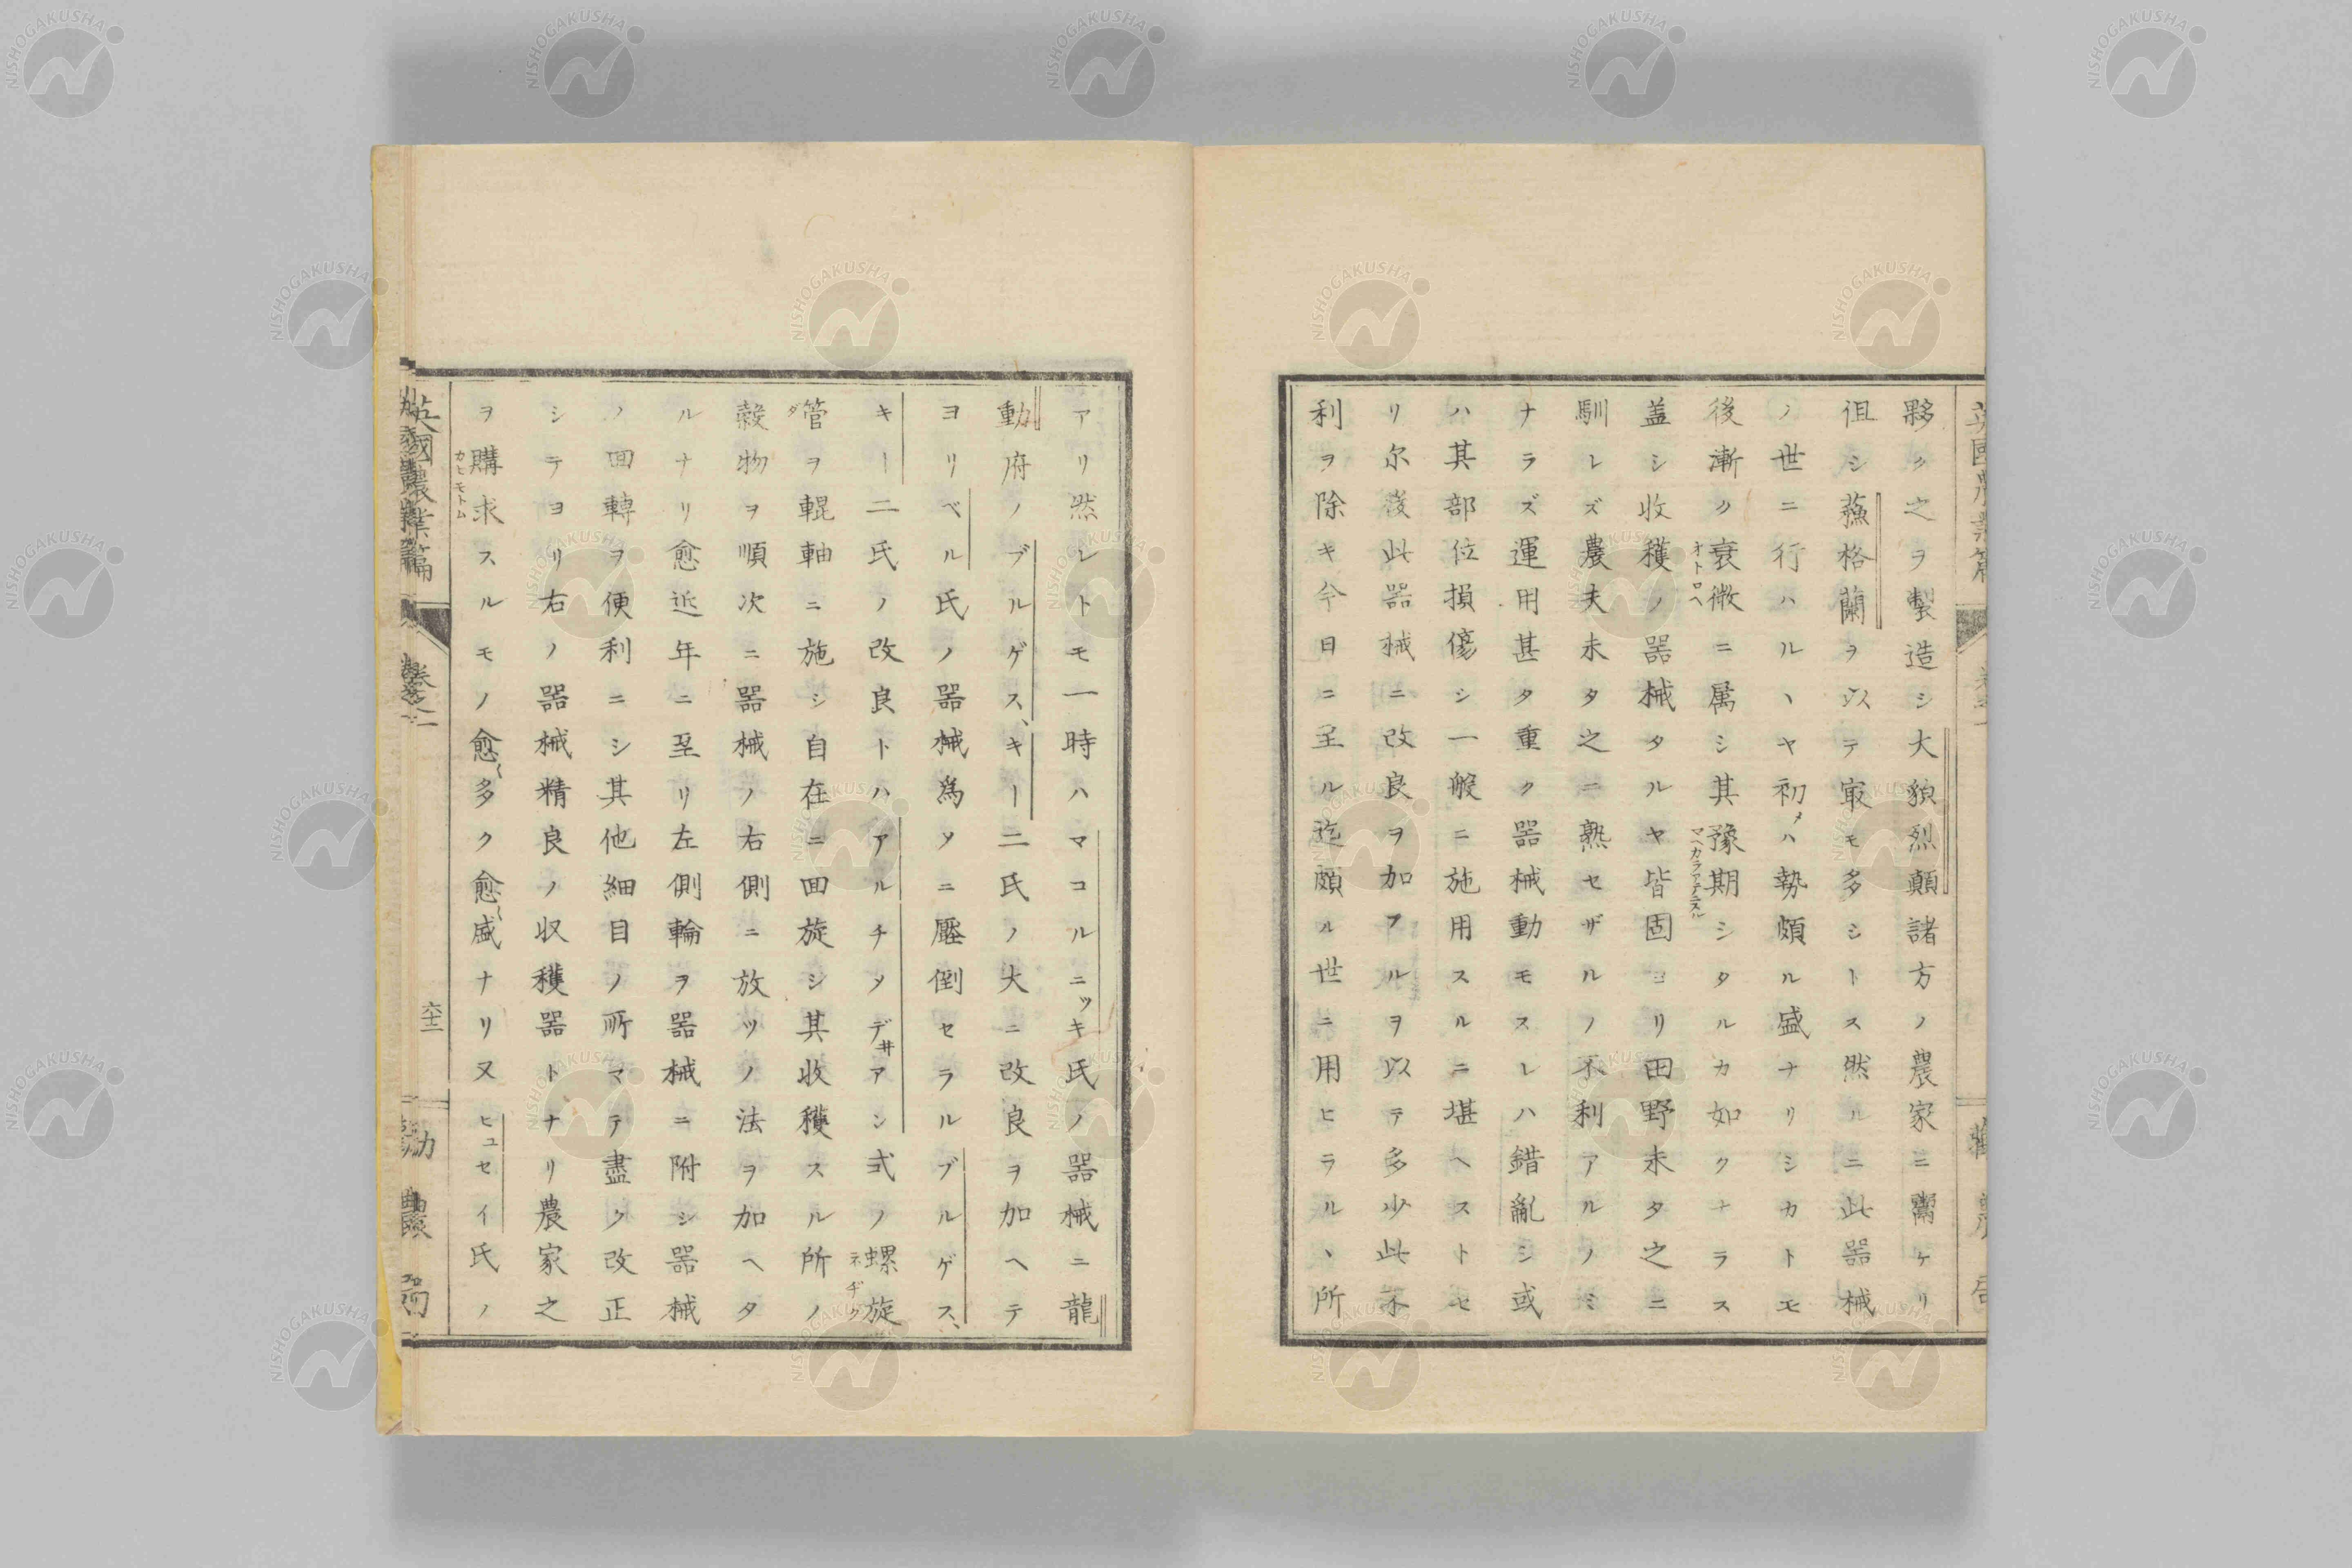 夥ク之ヲ製造シ大貌烈顛諸方ノ農家ニ鬻ケリ
徂シ蘓格蘭ヲ以テ㝡モ多シトス然ルニ此器械
ノ世ニ行ハルヽヤ初メハ勢頗ル盛ナリシカトモ
後漸ク衰微ニ属シ其豫期シタルカ如クナラス
オトロヘ
盖シ收穫ノ器械タルヤ皆固ヨリ田野未タ之ニ
馴レズ農夫未タ之ニ熟セザルノ不利アルノミ
ナラズ運用甚タ重ク器械動モスレハ錯亂シ或
ハ其部位損傷シ一般ニ施用スルニ堪ヘストセ
リ尓後此器械ニ改良ヲ加フルヲ以テ多少此不
利ヲ除キ今日ニ至ル迄頗ル世ニ用ヒラルヽ所
アリ然レトモ一時ハマコルニッキ氏ノ器械ニ龍
動府ノブルゲス、キー二氏ノ大ニ改良ヲ加ヘテ
ヨリベル氏ノ器械爲ソニ壓倒セラルブルゲス、
キー二氏ノ改良トハアルチメデ井アン式ノ螺旋
ネヂクダ
管ヲ輥軸ニ施シ自在ニ回旋シ其收穫スル所ノ
穀物ヲ順次ニ器械ノ右側ニ放ツノ法ヲ加ヘタ
ルナリ愈近年ニ至リ左側輪ヲ器械ニ附シ器械
ノ回轉ヲ便利ニシ其他細目ノ所マテ盡ク改正
シテヨリ右ノ器械精良ノ収穫器トナリ農家之
ヲ購求スルモノ愈〻多ク愈〻盛ナリ又ヒユセイ氏ノ
カヒモトム
英國農業篇 卷之二 六十二 勸農局